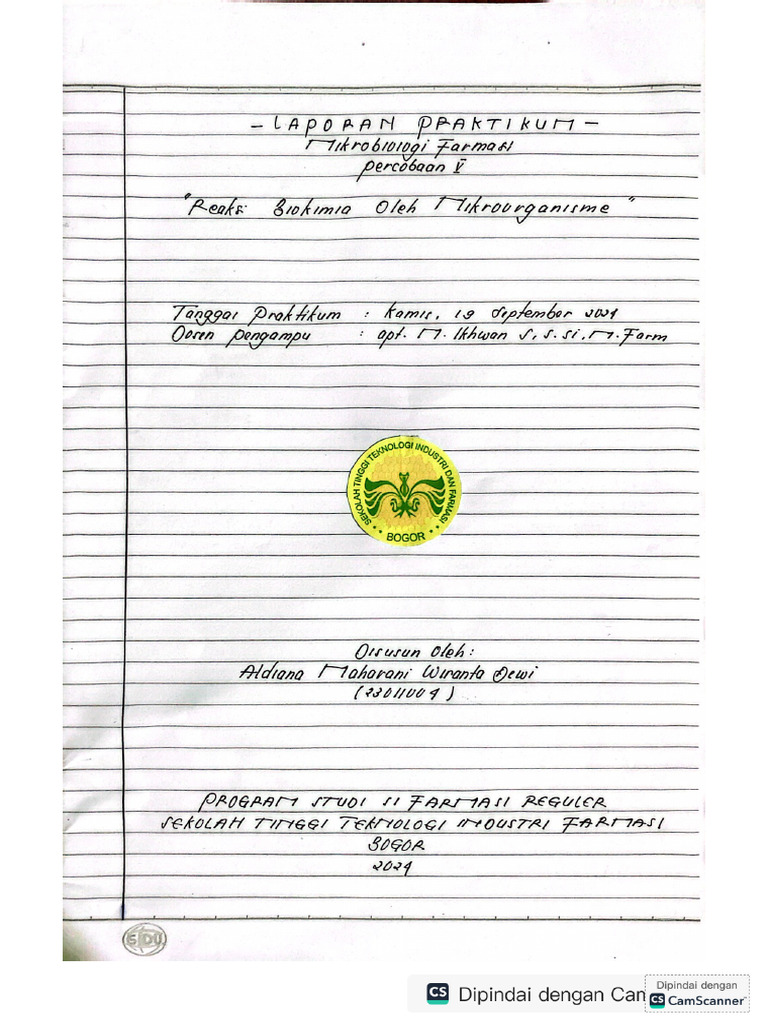 - LAPORAN PRAKTIKUM -
Mikrobiologi Farmasi
Percobaan V
"Reaksi Biokimia Oleh Mikroorganisme"
Tanggal Praktikum : Kamis, 19 September 2024
Dosen Pengampu : apt. M. Ikhwan S, S.Si, M.Farm
SEKOLAH TINGGI TEKNOLOGI INDUSTRI DAN FARMASI
BOGOR
Disusun Oleh :
Aldiana Maharani Wiranta Dewi
(23011004)
PROGRAM STUDI S1 FARMASI REGULER
SEKOLAH TINGGI TEKNOLOGI INDUSTRI FARMASI
BOGOR
2024
SIDU
CS Dipindai dengan Cam
Dipindai dengan
CS CamScanner